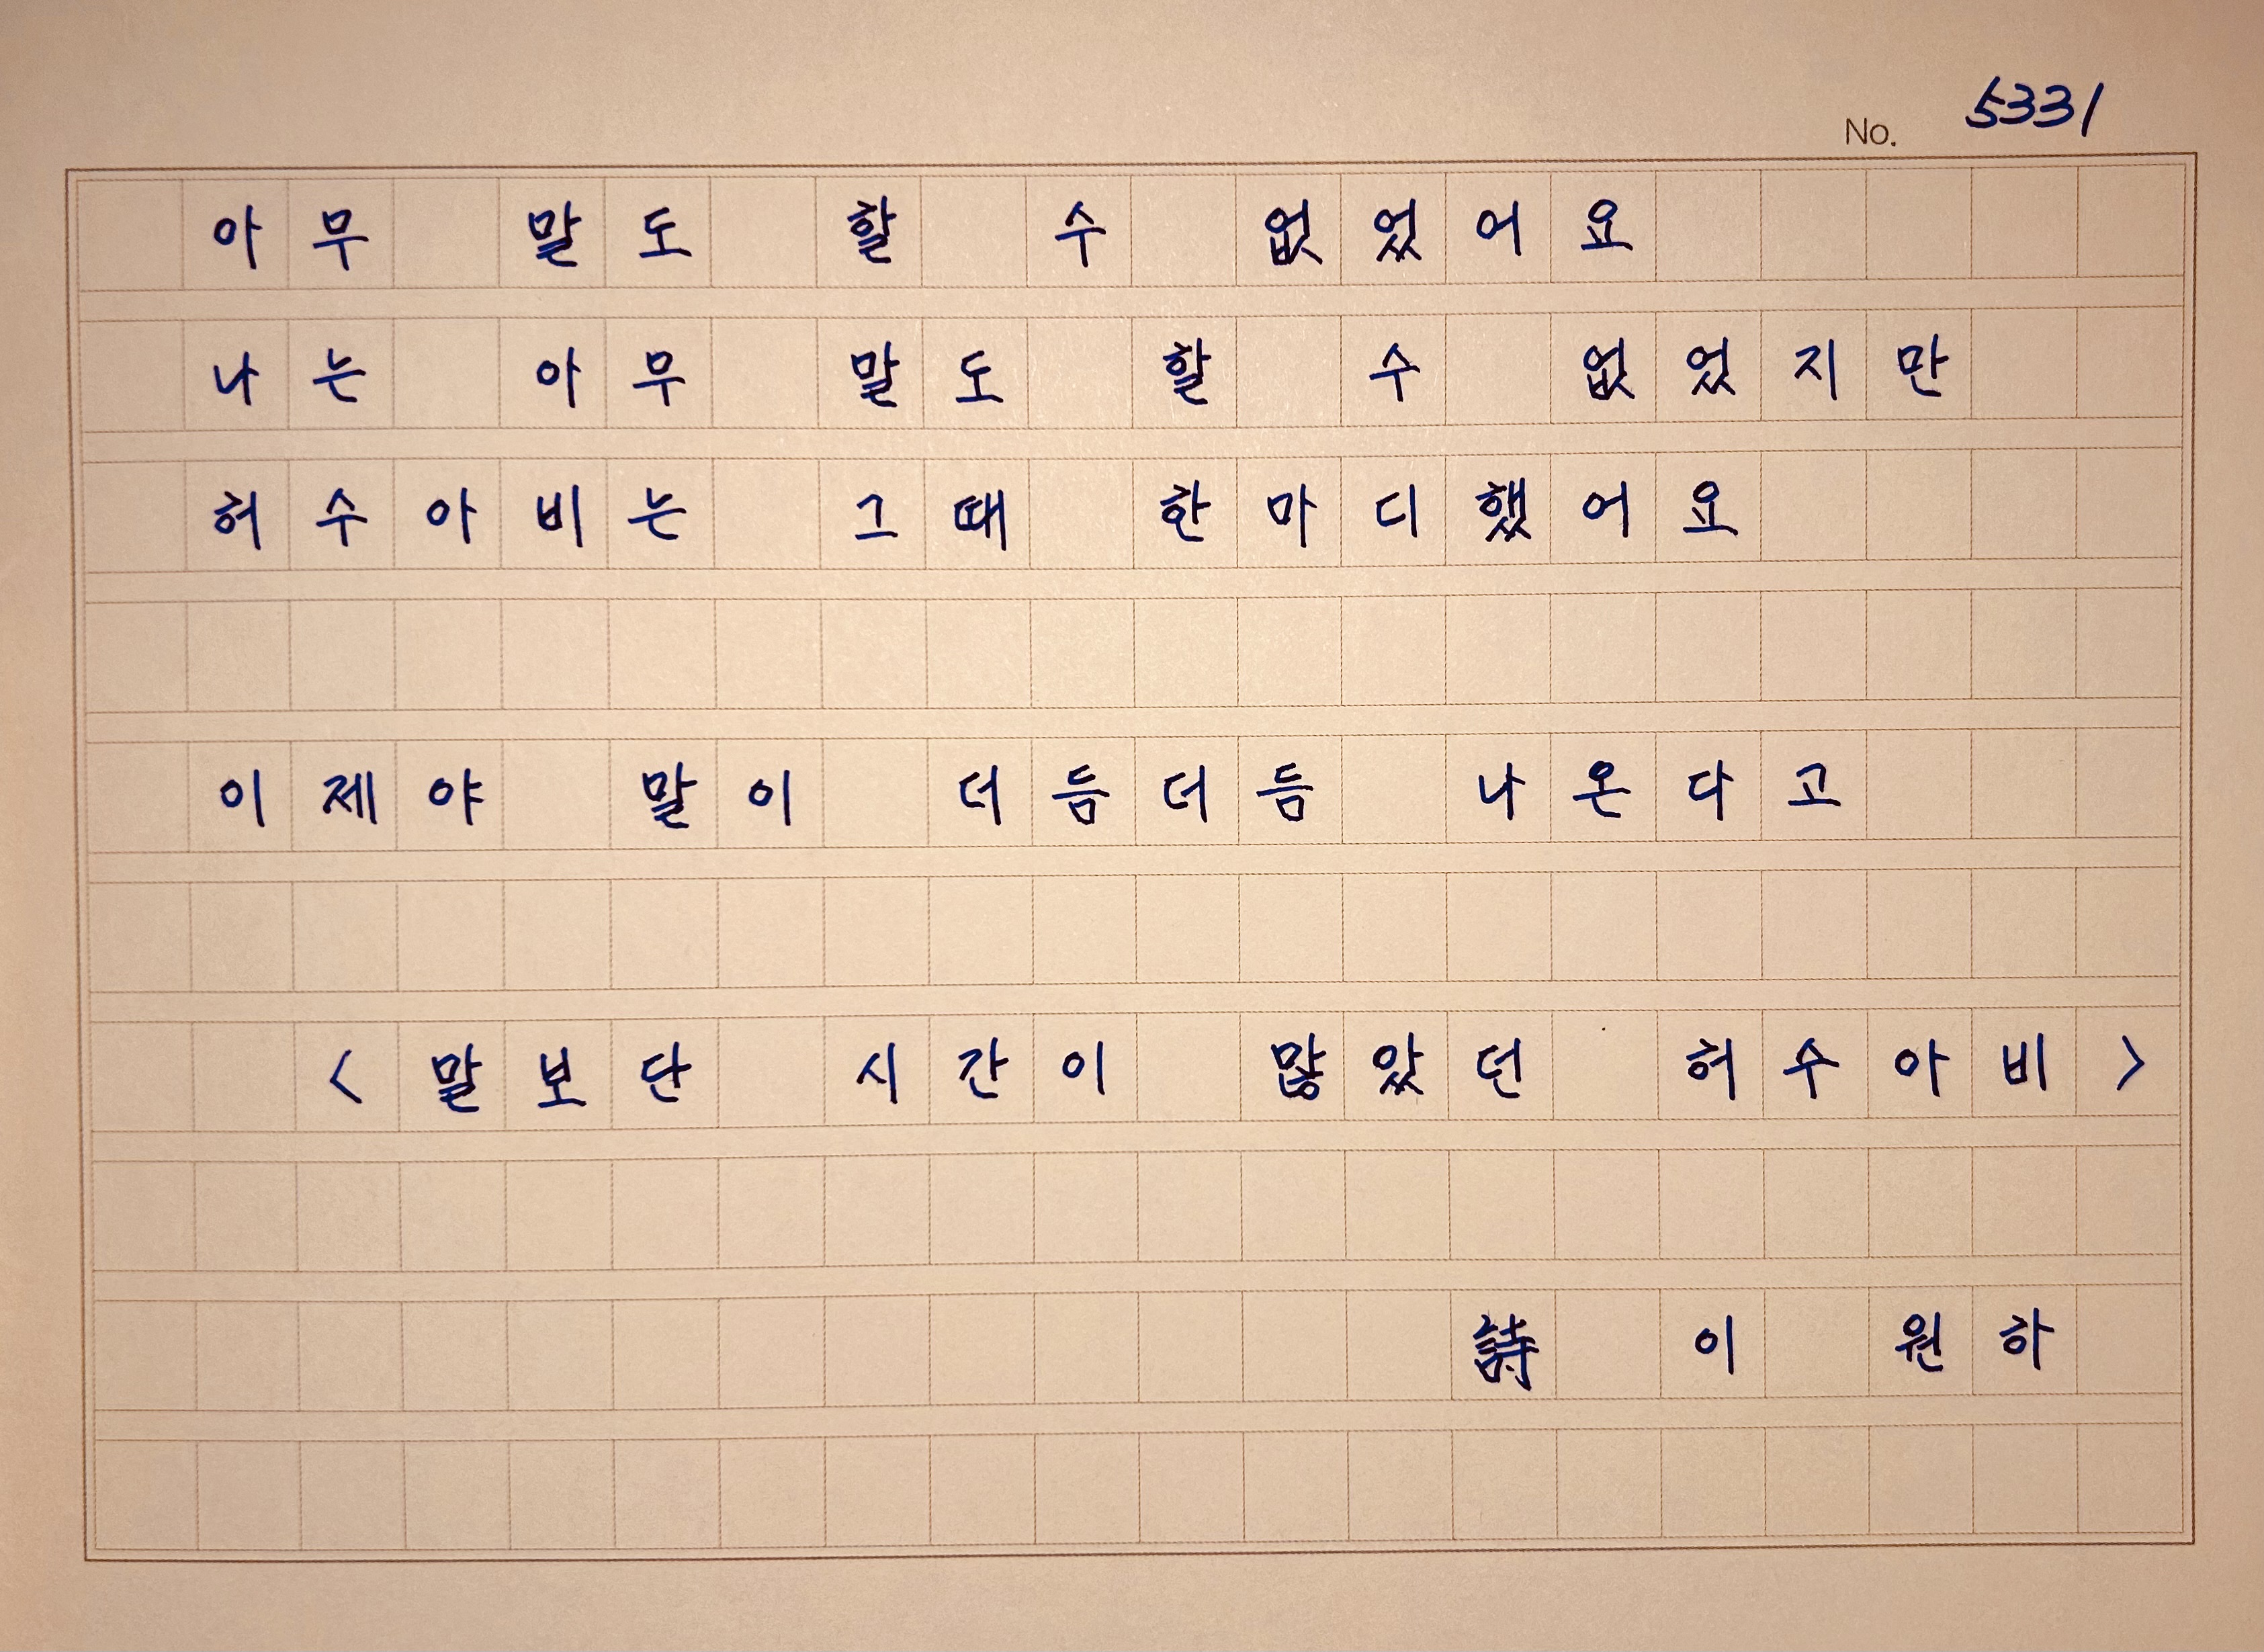 No. 5331
아무 말도 할 수 없었어요
나는 아무 말도 할 수 없었지만
허수아비는 그때 한마디했어요
이제야 말이 더듬더듬 나온다고
<말보단 시간이 많았던 허수아비>
詩 이 원하